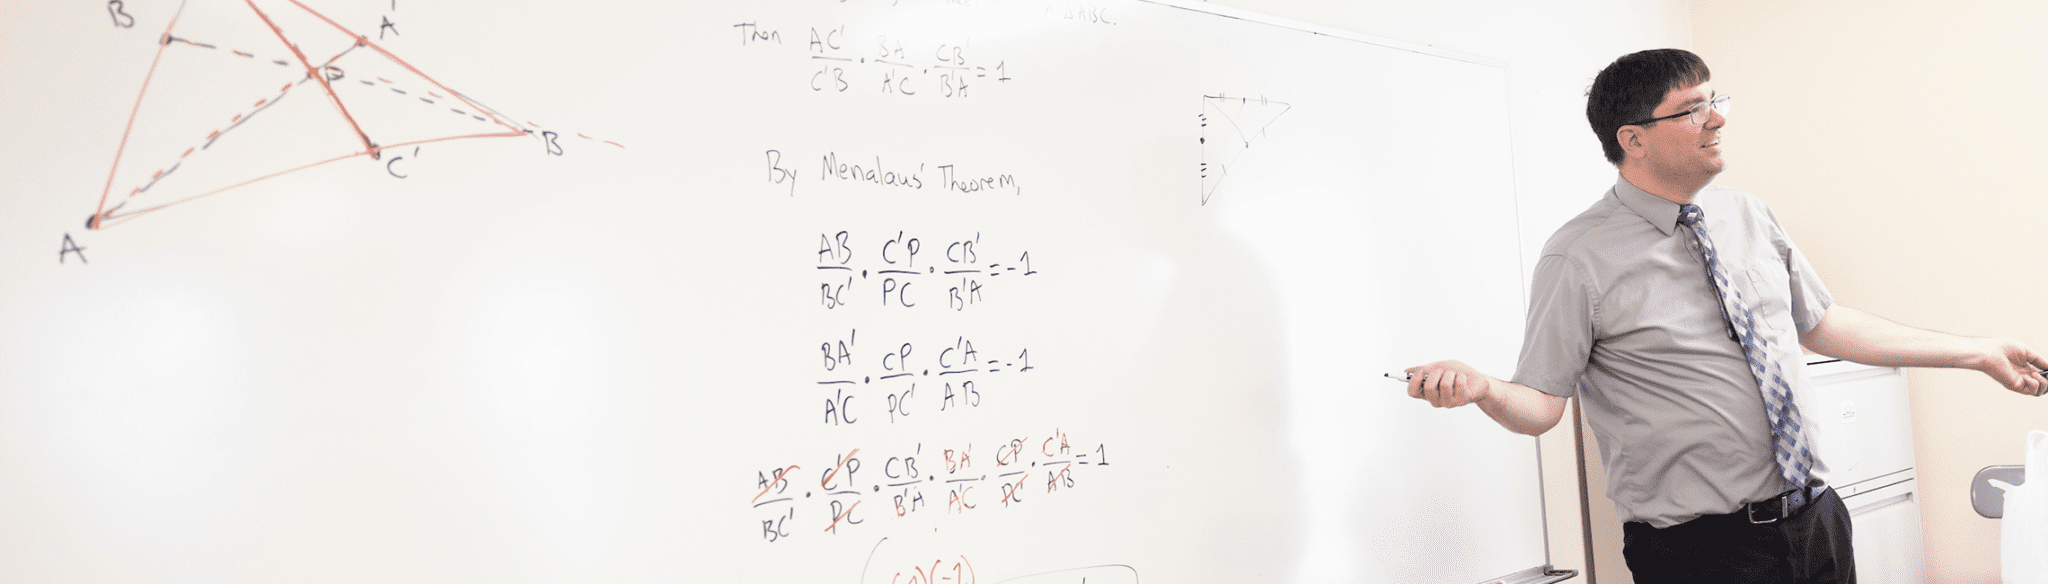 B
A'
P
C'
B
A
ΔABC.
Then AC'/C'B · BA'/A'C · CB'/B'A = 1
By Menalaus' Theorem,
AB/BC' · C'P/PC · CB'/B'A = -1
BA'/A'C · CP/PC' · C'A/AB = -1
AB/BC' · C'P/PC · CB'/B'A · BA'/A'C · CP/PC' · C'A/AB = 1
(-1)(-1)